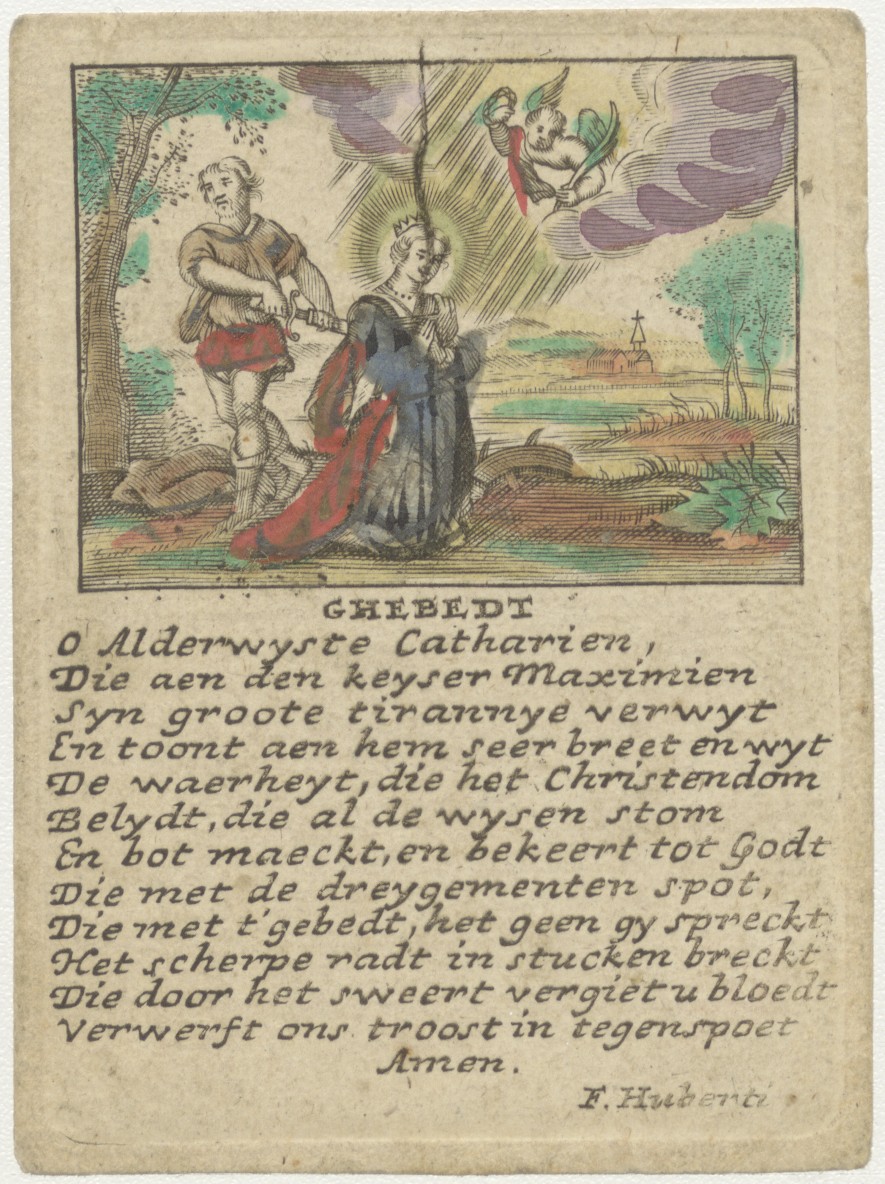 GHEBEDT
O Alderwyste Catharien,
Die aen den keyser Maximien
Syn groote tirannye verwyt
En toont aen hem seer breet en wyt
De waerheyt, die het Christendom
Belydt, die al de wysen stom
En bot maeckt, en bekeert tot Godt
Die met de dreygementen spot,
Die met t'gebedt, het geen gy spreckt
Het scherpe radt in stucken breckt
Die door het sweert vergiet u bloedt
Verwerft ons troost in tegenspoet
Amen.
F. Huberti